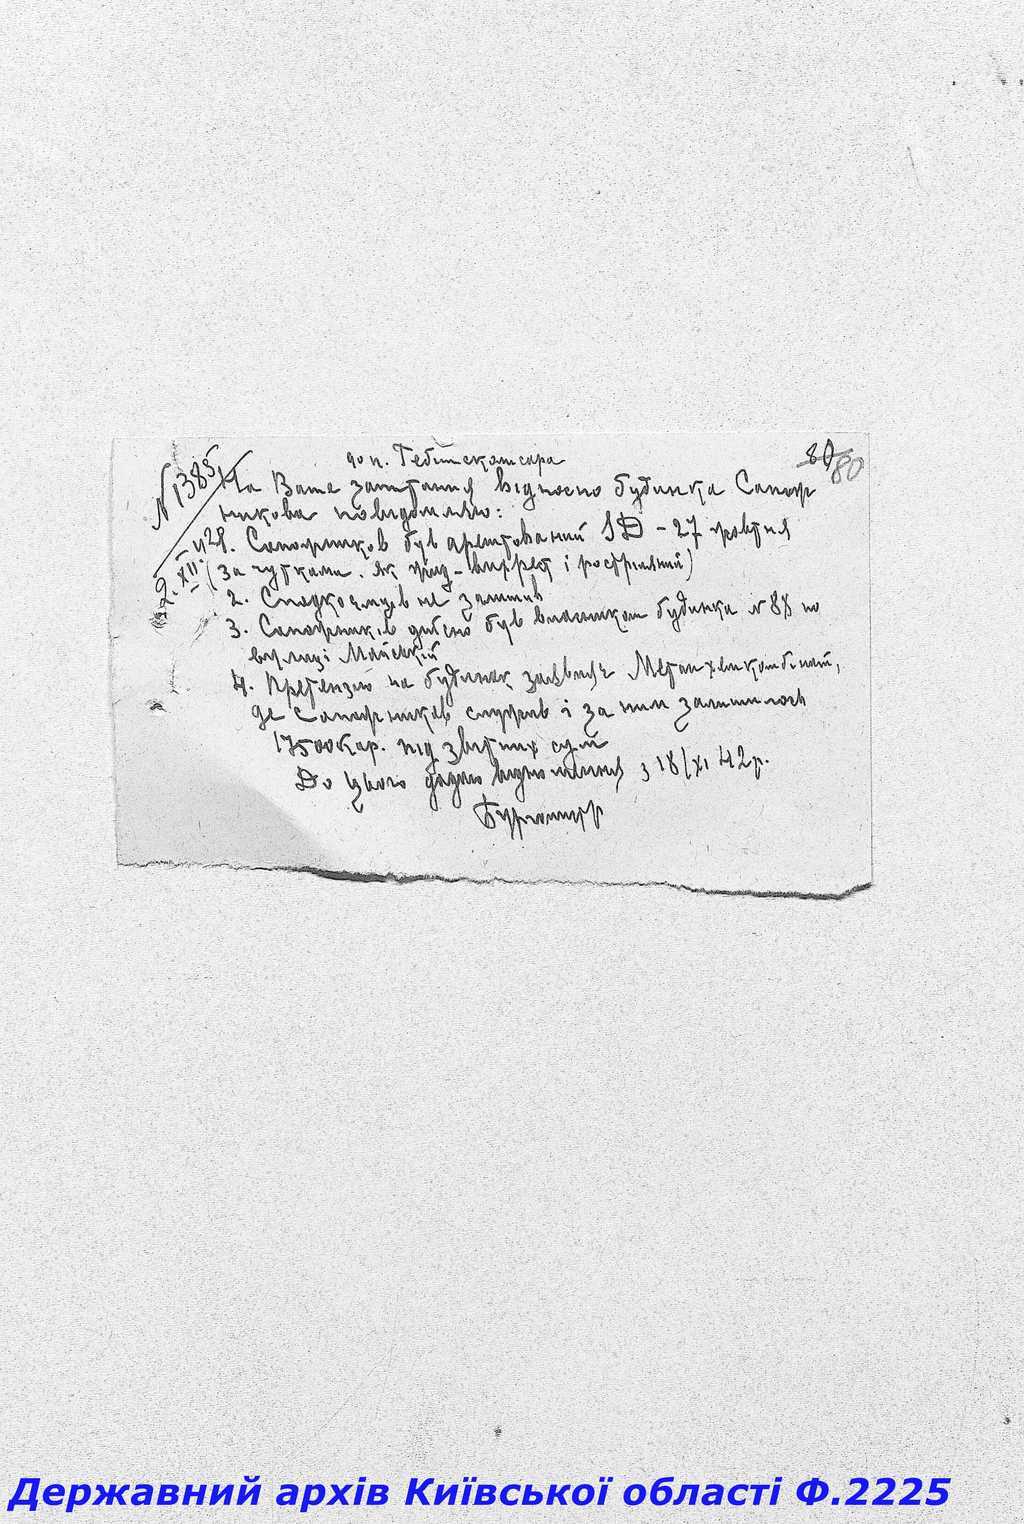 80 80
№ 1385
2.XII.42р.
до п. Гебітскомісара
На Ваше запитання відносно будинка Сапож
никова повідомляю:
1. Сапожников був арештований SD – 27 жовтня
(за чутками, як жид і розстріляний)
2. Спадкоємців не залишив
3. Сапожніків дійсно був власником будинка № 88 по
вулиці
4. Претензію на будинок заявляє
де Сапожников служив і за ним залишилось
17500 кар. підзвітних сум
До цього додаю відношення з 18/XI 42р.
Бургомістр
Державний архів Київської області Ф.2225